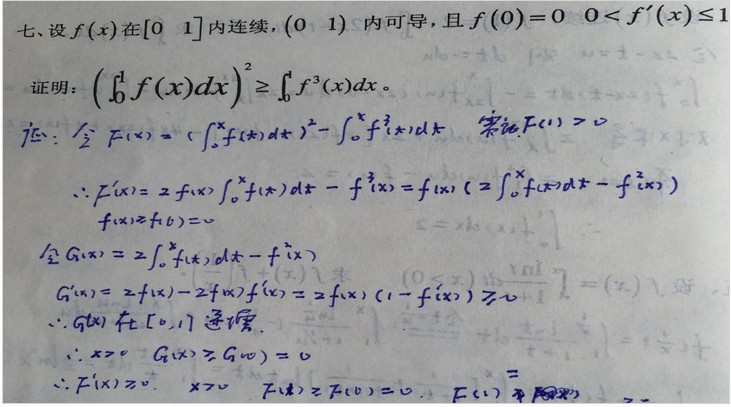 七、设 f(x) 在[0 1]内连续，(0 1) 内可导，且 f(0)=0 0<f′(x)≤1
证明：(∫₀¹ f(x)dx)² ≥ ∫₀¹ f³(x)dx。
证：令 F(x) = (∫₀ˣ f(t)dt)² − ∫₀ˣ f³(t)dt 需证 F(1) ≥ 0
∴ F′(x) = 2f(x) ∫₀ˣ f(t)dt − f³(x) = f(x) (2∫₀ˣ f(t)dt − f²(x))
f(x) ≥ f(0) = 0
令 G(x) = 2∫₀ˣ f(t)dt − f²(x)
G′(x) = 2f(x) − 2f(x) f′(x) = 2f(x) (1 − f′(x)) ≥ 0
∴ G(x) 在 [0,1] 递增.
∴ x>0 G(x) ≥ G(0) = 0
∴ F′(x) ≥ 0. x>0 F(x) ≥ F(0) = 0. F(1)